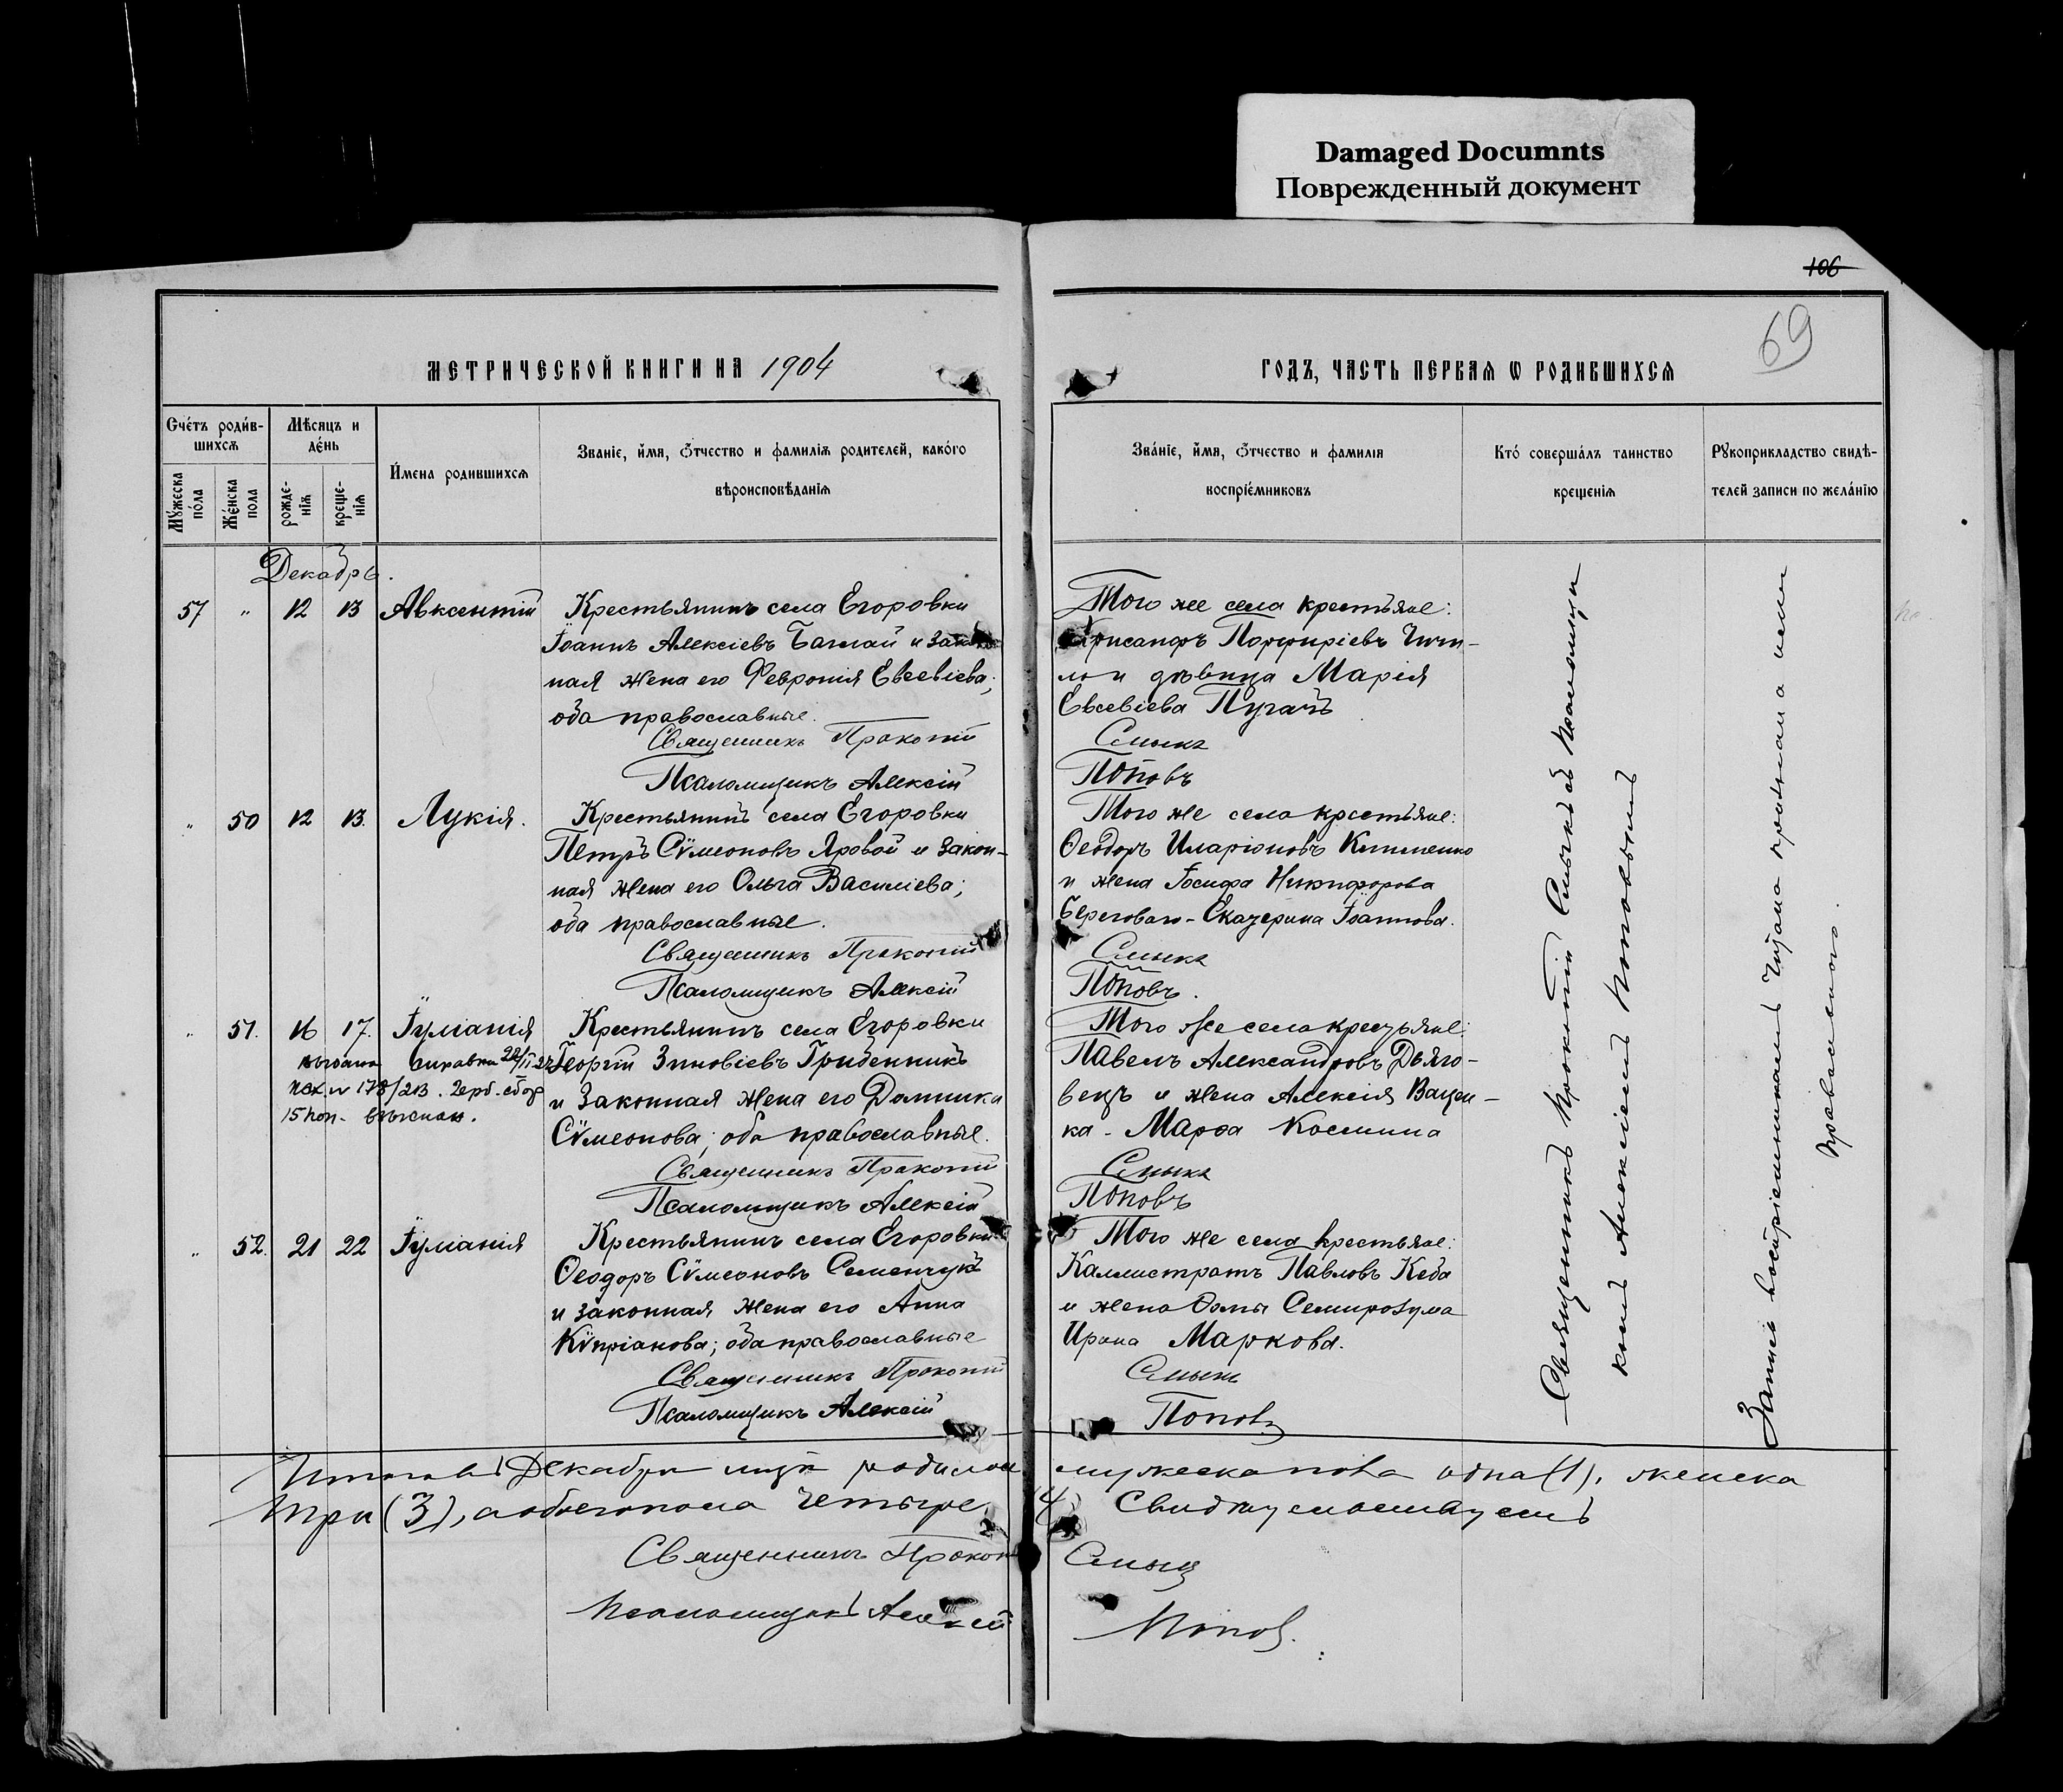 Damaged Documnts
Поврежденный документ
106
69
МЕТРИЧЕСКОЙ КНИГИ НА 1904
ГОДЪ, ЧАСТЬ ПЕРВАЯ Ѡ РОДИВШИХСЯ
Счетъ родив-
шихся
Мѣсяцъ и
день
Имена родившихся
Званіе, имя, отчество и фамилія родителей, какого
вѣроисповѣданія
Мужеска
пола
Женска
пола
рожде-
нія
креще-
нія
Званіе, имя, отчество и фамилія
воспріемниковъ
Кто совершалъ таинство
крещенія
Рукоприкладство свидѣ-
телей записи по желанію
Декабрь.
57 " 12 13 Авксентій
Крестьянинъ села Егоровки
Іоаннъ Алексіевъ Баглай и закон-
ная жена его Февронія Евсевіева;
оба православные.
Священникъ Прокопій
Псаломщикъ Алексій
Того же села крестьяне:
Порфиріевъ
и дѣвица Марія
Евсевіева Пугачъ
Смыкъ
Поповъ
" 50 12 13. Лукія.
Крестьянинъ села Егоровки
Петръ Сѵмеоновъ Яровой и закон-
ная жена его Ольга Василіева;
оба православные.
Священникъ Прокопій
Псаломщикъ Алексій
Того же села крестьяне:
Ѳеодоръ Иларіоновъ Клименко
и жена Іосифа Никифорова
Берегового - Екатерина Іоаннова.
Смыкъ
Поповъ.
" 51. 16 17. Іуліанія
выдана справка 22/II-27
исх. № 178/213. герб. сбор
15 коп. взыскан.
Крестьянинъ села Егоровки
Георгій Зиновіевъ Гребенникъ
и законная жена его Домника
Сѵмеонова; оба православные.
Священникъ Прокопій
Псаломщикъ Алексій
Того же села крестьяне:
Павелъ Александровъ Дьяго-
вецъ и жена Алексія Вацен-
ка - Марѳа Космина
Смыкъ
Поповъ
" 52. 21 22 Іуліанія
Крестьянинъ села Егоровки
Ѳеодоръ Сѵмеоновъ Семенчукъ
и законная жена его Анна
Кѵпріанова; оба православные
Священникъ Прокопій
Псаломщикъ Алексій
Того же села крестьяне:
Каллистратъ Павловъ Кеба
и жена Ѳомы Семирозума
Ирина Маркова.
Смыкъ
Поповъ
Священникъ Прокопій Смыкъ съ псаломщи-
комъ Алексіемъ Поповымъ
Запись воспріемникамъ читана прочтена и ими
Итого въ Декабрѣ мцѣ родилось мужеска пола одна (1), женска
три (3), а обоего пола четыре (4) Свидѣтельствуемъ
Священникъ Прокопій Смыкъ
Псаломщикъ Алексій Поповъ.